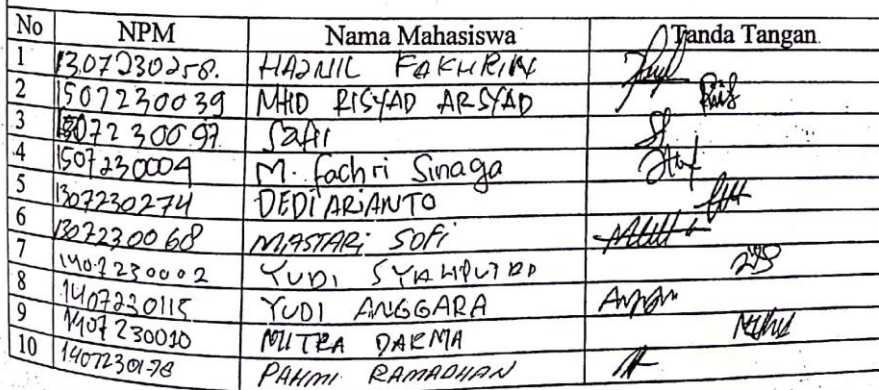 No NPM Nama Mahasiswa Tanda Tangan
1 1307230258. HAJNIL FAKHRIN
2 1507230039 MHD RISYAD ARSYAD
3 1307230097 Safii
4 1507230004 M. fachri Sinaga
5 1307230274 DEDI ARIANTO
6 1307230068 MASTARi SOFi
7 1407230002 YUDI SYAHPUTRA
8 1407230115 YUDI ANGGARA
9 1407230010 MITRA DARMA
10 1407230178 PAHMI RAMADHAN